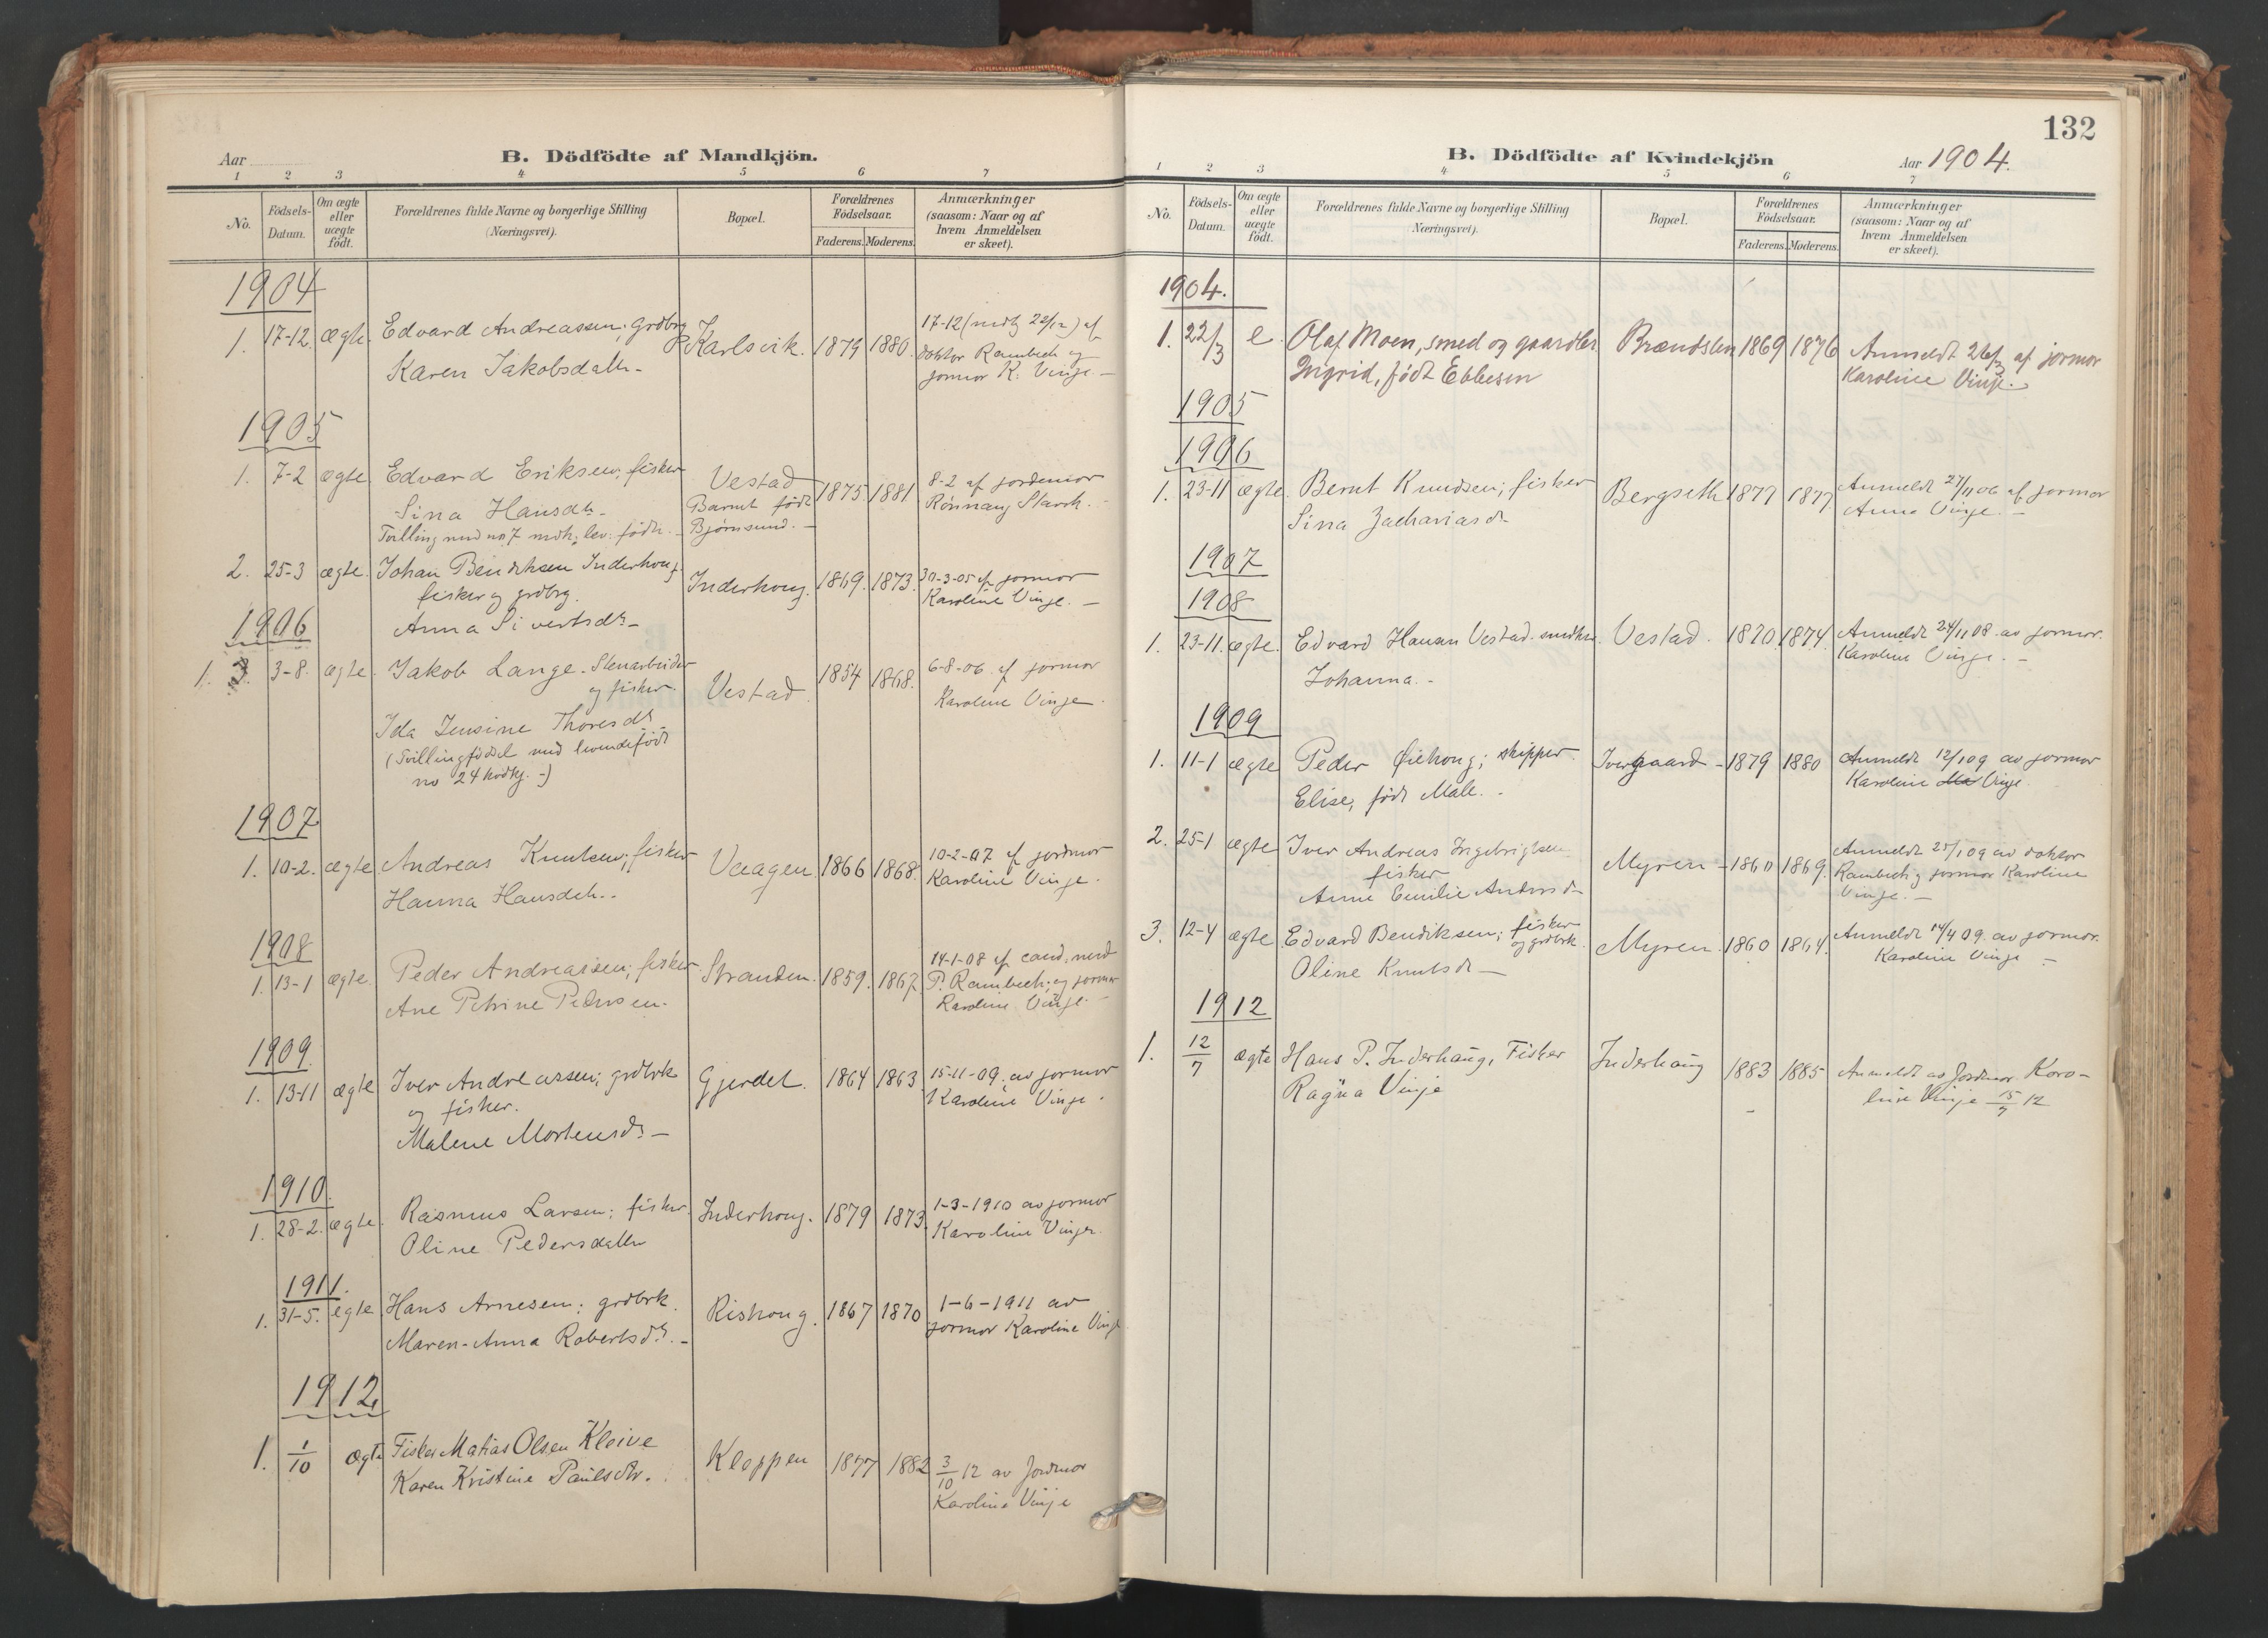 Aar
B. Dödfödte af Mandkjön.
1 2 3 4 5 6 7
No.
Födsels-
Datum.
Om ægte
eller
uægte
födt.
Forældrenes fulde Navne og borgerlige Stilling
(Næringsvei).
Bopæl.
Forældrenes
Födselsaar.
Faderens. Moderens.
Anmærkninger
(saasom: Naar og af
hvem Anmeldelsen
er skeet).
1904
1. 17-12. ægte. Edvard Andreassen; grdbrg Karlsvik. 1879 1880. 17-12 (mdtg 22/12) af
Karen Jakobsdatter - doktor Rambech og
jormor K. Vinje. -
1905
1. 7-2 ægte Edvard Eriksen; fisker Vestad 1875. 1881 8-2 af jordemor
Sina Hansdtr. - Barnet født Rønnaug Stavik. -
Tvilling med no 7 mdk. lev. fødte. - Bjørnsund. -
2. 25-3 ægte. Johan Bendiksen Inderhoug Inderhoug. 1869. 1873. 30-3-05 af jormor
fisker og grdbrg. Karoline Vinje. -
Anna Sivertsdtr -
1906
1. 3-8. ægte. Jakob Lange. Stenarbeider Vestad 1854 1868. 6-8-06. af jormor
og fisker. Karoline Vinje.
Ida Jensine Thoresdtr -
(Tvillingfødsel med levendefødt
no 24 kvdkj. -)
1907
1. 10-2. ægte Andreas Knutsen; fisker Vaagen 1866 1868. 10-2-07 af jordmor
Hanna Hansdtr. - Karoline Vinje.
1908
1. 13-1 ægte. Peder Andreassen; fisker Stranden. 1859. 1867. 14-1-08 af cand. med
Ane Petrine Pedersen. P. Rambech; og jormor
Karoline Vinje. -
1909.
1. 13-11 ægte Iver Andreassen; grdbrk Gjerdet. 1864 1863 15-11-09. av jormor
og fisker. Karoline Vinje.
Malene Mortensdtr -
1910.
1. 28-2. ægte. Rasmus Larsen; fisker. Inderhoug. 1879 1873. 1-3-1910 av jormor
Oline Pedersdatter Karoline Vinje.
1911.
1. 31-5. egte Hans Arnesen; grdbrk. Rishoug. 1867 1870 1-6-1911 av
Maren-Anna Robertsdtr. - jormor Karoline Vinje
1912
1. 1/10 ægte Fisker Matias Olsen Kleive Kleppen 1877 1882 3/10 12 av Jordmor
Karen Kristine Paulsdtr. Karoline Vinje
132
B. Dödfödte af Kvindekjön
Aar 1904.
1 2 3 4 5 6 7
No.
Födsels-
Datum.
Om ægte
eller
uægte
födt.
Forældrenes fulde Navne og borgerlige Stilling
Næringsvei).
Bopæl.
Forældrenes
Födselsaar.
Faderens. Moderens.
Anmærkninger
(saasom: Naar og af
hvem Anmeldelsen
er skeet).
1904.
1. 22/3 e. Olaf Moen, smed og gaardbr 1869 1876 Anmeldt 26/3 af jormor
Ingrid, født Ebbesen Karoline Vinje.
1905
1906
1. 23-11 ægte. Bernt Knudsen; fisker Bergseth 1877 1877 Anmeldt 27/11 06 af jormor
Sina Zachariasdr Anne Vinje. -
1907
1908
1. 23-11. ægte. Edvard Hanan Vestad. Vestad. 1870 1874. Anmeldt 24/11 08. av jormor.
Johanna. - Karoline Vinje. -
1909
1. 11-1 ægte Peder Øiehoug; skipper. Ivergaard - 1879 1880 Anmeldt 12/1 09 av jormor
Elise, født Male. - Karoline Vinje.
2. 25-1 ægte Iver Andreas Ingebrigtsen Myren - 1860 1869. Anmeldt 25/1 09 av doktor
fisker Rambech og jormor Karoline
Anne Emilie Andersdr Vinje. -
3. 12-4 ægte Edvard Bendiksen; fisker Myren. 1860 1864. Anmeldt 14/4 09. av jormor.
og grdbrk. Karoline Vinje -
Oline Knutsdr -
1912
1. 12/7 ægte Hans P. Inderhaug, Fisker Inderhaug 1883 1885 Anmeldt av Jordmor Karo-
Ragna Vinje line Vinje 15/7 12